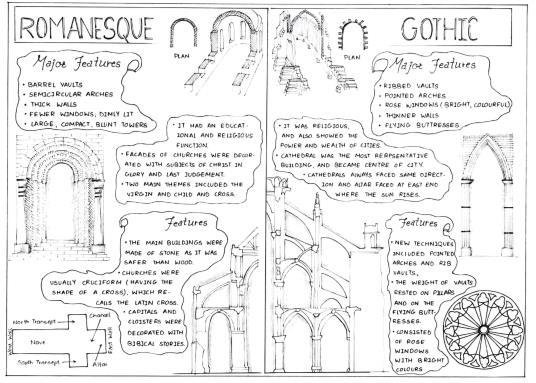 ROMANESQUE
PLAN
Major Features
• BARREL VAULTS
• SEMICIRCULAR ARCHES
• THICK WALLS
• FEWER WINDOWS, DIMLY LIT
• LARGE, COMPACT, BLUNT TOWERS
• IT HAD AN EDUCAT-
IONAL AND RELIGIOUS
FUNCTION.
• FACADES OF CHURCHES WERE DECOR-
ATED WITH SUBJECTS OF CHRIST IN
GLORY AND LAST JUDGEMENT.
• TWO MAIN THEMES INCLUDED THE
VIRGIN AND CHILD AND CROSS.
Features
• THE MAIN BUILDINGS WERE
MADE OF STONE AS IT WAS
SAFER THAN WOOD.
• CHURCHES WERE
USUALLY CRUCIFORM (HAVING THE
SHAPE OF A CROSS), WHICH RE-
CALLS THE LATIN CROSS.
• CAPITALS AND
CLOISTERS WERE
DECORATED WITH
BIBICAL STORIES.
North Transept
Chancel
WEST WALL
Nave
EAST WALL
South Transept
Altar
GOTHIC
PLAN
Major Features
• RIBBED VAULTS
• POINTED ARCHES
• ROSE WINDOWS (BRIGHT, COLOURFUL)
• THINNER WALLS
• FLYING BUTTRESSES
• IT WAS RELIGIOUS,
AND ALSO SHOWED THE
POWER AND WEALTH OF CITIES.
• CATHEDRAL WAS THE MOST REPRSENTATIVE
BUILDING, AND BECAME CENTRE OF CITY.
• CATHEDRALS ALWAYS FACED SAME DIRECT-
ION AND ALTAR FACED AT EAST END
WHERE THE SUN RISES.
Features
• NEW TECHNIQUES
INCLUDED POINTED
ARCHES AND RIB
VAULTS,
• THE WEIGHT OF VAULTS
RESTED ON PILLARS
AND ON THE
FLYING BUTT-
RESSES.
• CONSISTED
OF ROSE
WINDOWS
WITH BRIGHT
COLOURS